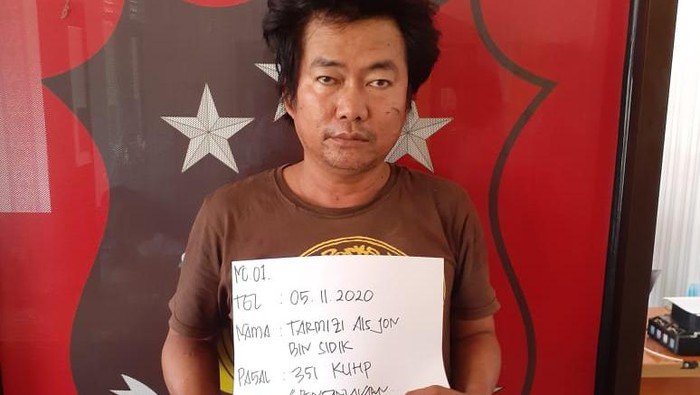 NO. 01.
TGL : 05.11.2020
NAMA : TARMIZI Als JON
BIN SIDIK
PASAL : 351 KUHP